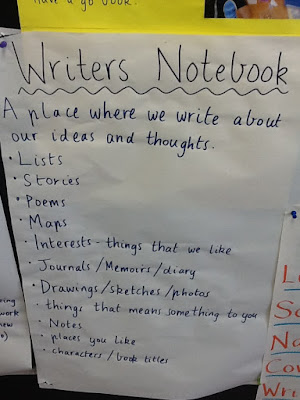 have a go book.
Writers Notebook
A place where we write about
our ideas and thoughts.
• Lists
• Stories
• Poems
• Maps
• Interests - things that we like
• Journals/Memoirs/diary
• Drawings/sketches/photos
• things that means something to you
• Notes
• places you like
• characters / book titles